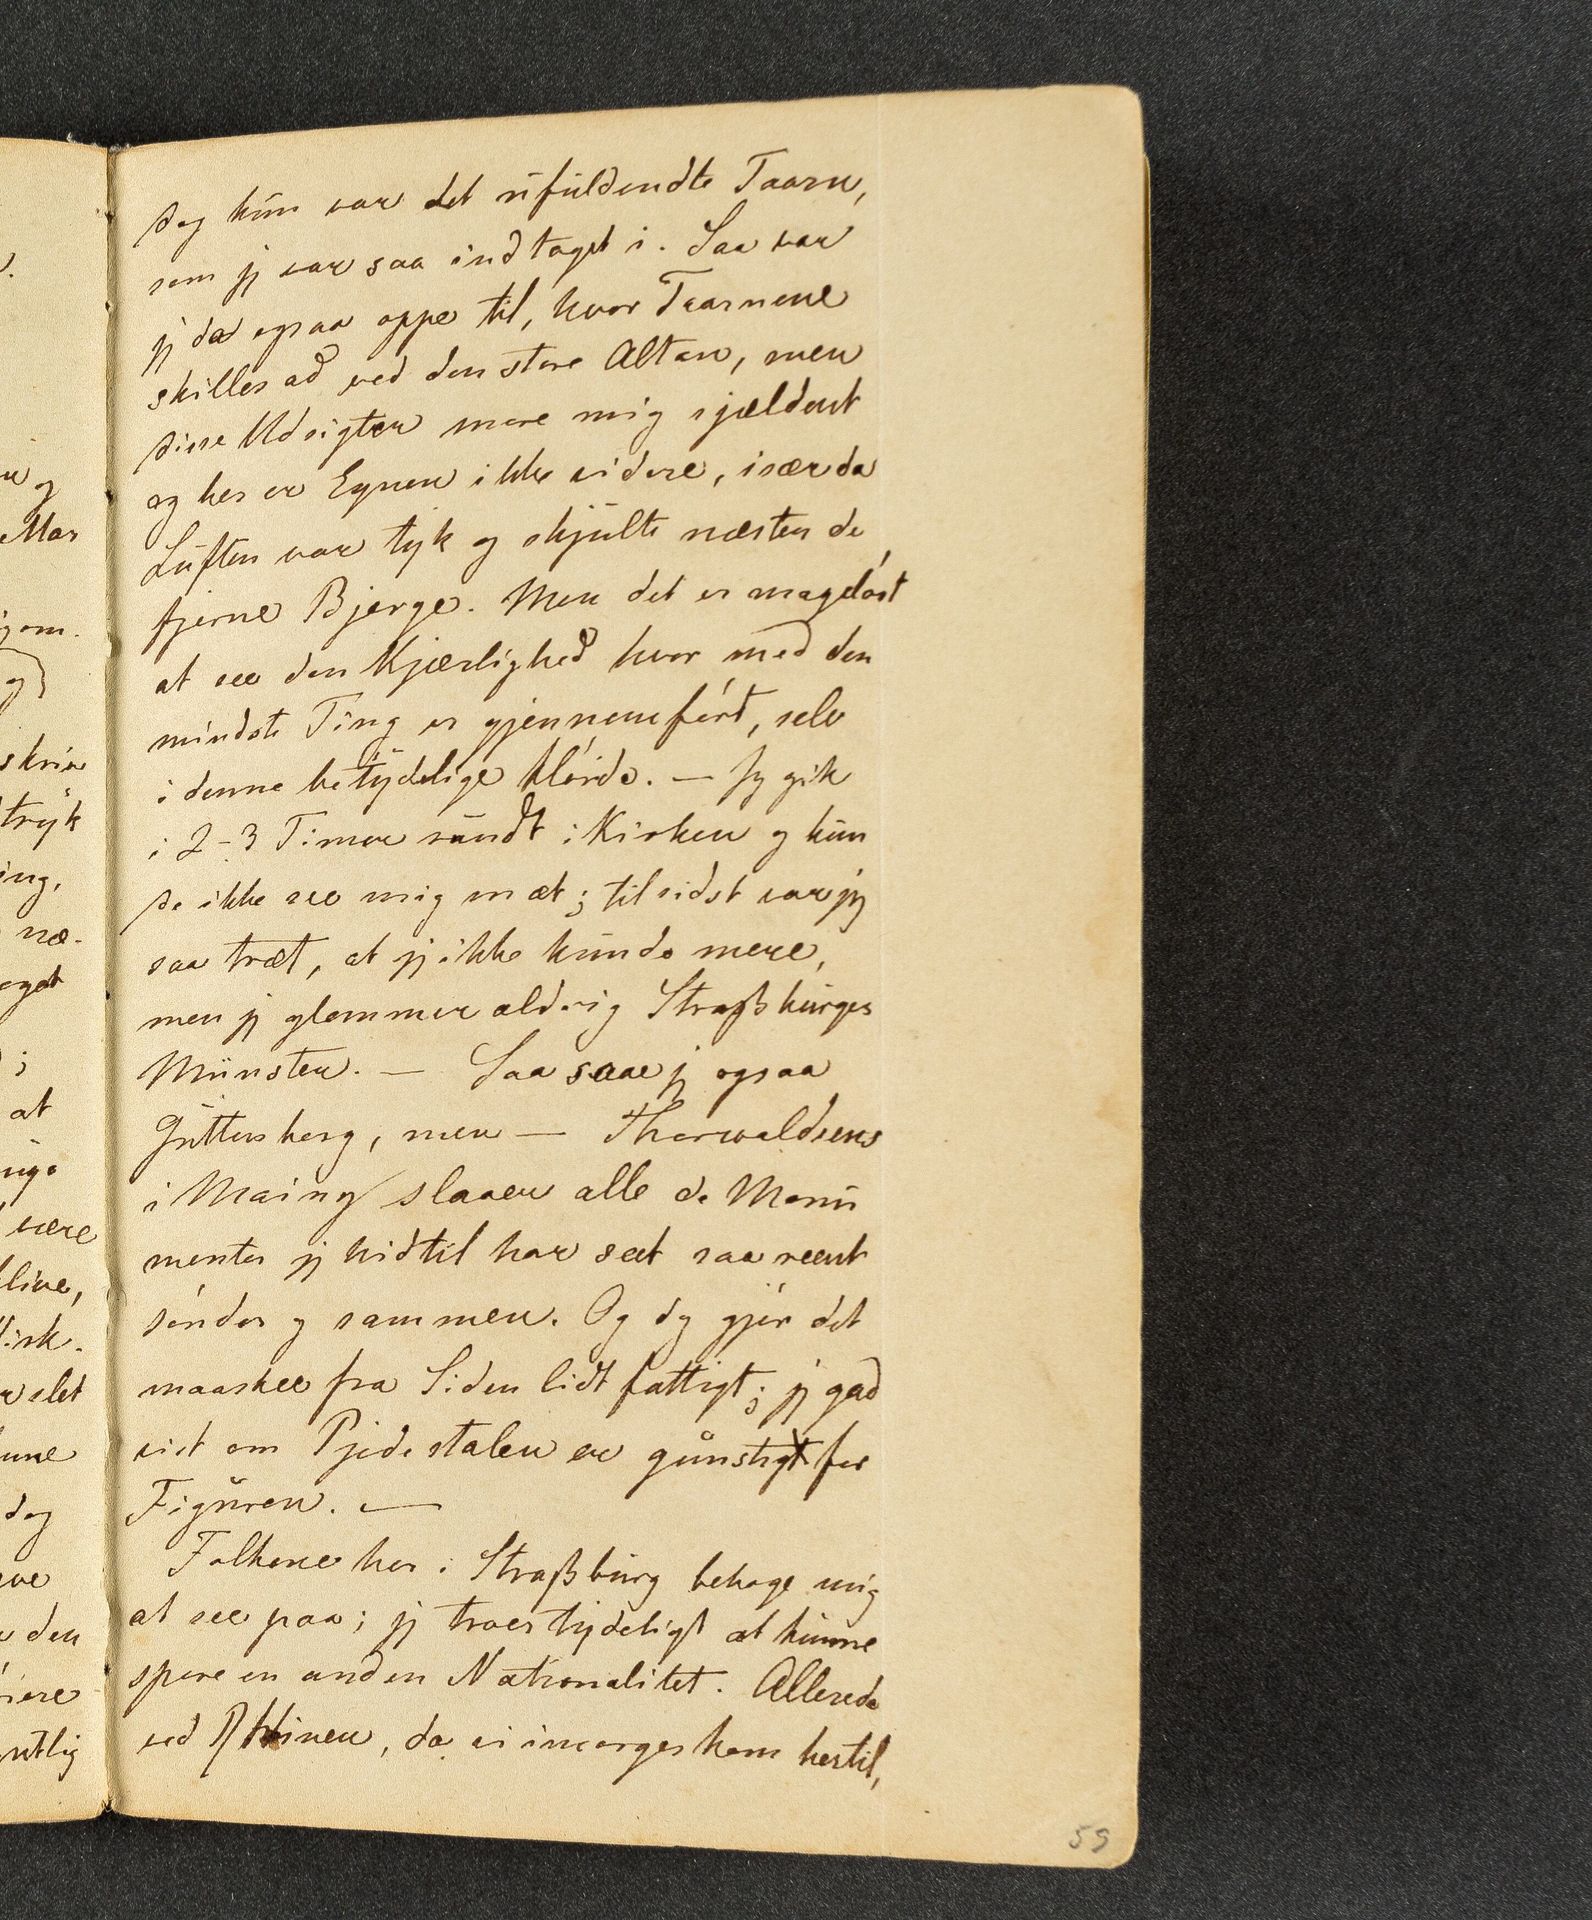 dog kun var det ufuldendte Taarn,
som jeg var saa indtaget i. Saa var
jeg da ogsaa oppe til, hvor Taarnene
skilles ad ved den store Altan, men
disse Udsigter more mig sjældent
og her er Egnen ikke videre, især da
Luften var tyk og skjulte næsten de
fjerne Bjerge. Men det er mageløst
at see den Kjærlighed hvor med den
mindste Ting er gjennemført, selv
i denne betydelige Höide. — Jeg gik
i 2-3 Timer rundt i Kirken og kun
de ikke see mig mæt; tilsidst var jeg
saa træt, at jeg ikke kunde mere,
men jeg glemmer aldrig Straßburger
Münsteren. — Saa saae jeg ogsaa
Guttenberg, men — Thorwaldsens
i Mainz slaaer alle de Monu
menter jeg hidtil har seet saa reent
sönder og sammen. Og dog gjör det
maaskee fra Siden lidt fattigt; jeg gad
vist om Pjedestalen er gunstig for
Figuren. —
Folkene her i Straßburg behage mig
at see paa; jeg troer tydeligt at kunne
spore en anden Nationalitet. Allerede
ved Rhinen, da vi imorges kom hertil,
59
n og
Mar
som.
og
skrive
tryk
ing,
næ-
oget
;
at
unge
være
live,
isk.
slet
nne
dog
den
iere
ntlig